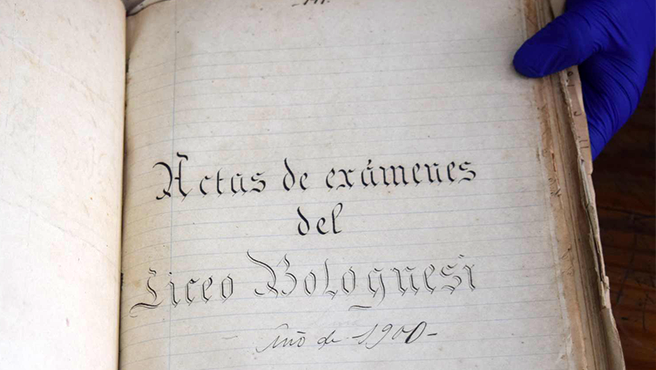 Actas de exámenes
del
Liceo Bolognesi
Año de -1900-